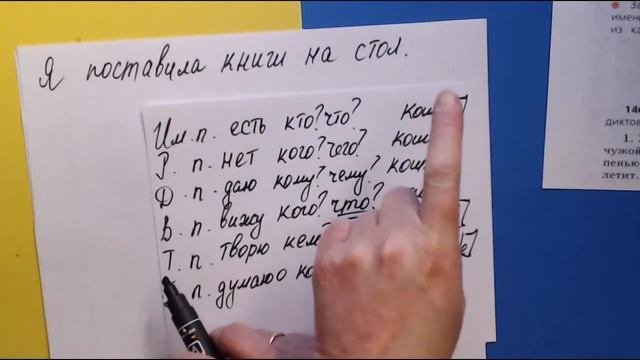 Я поставила книги на стол.
Им. п. есть кто? что?
Р. п. нет кого? чего?
Д. п. даю кому? чему?
В. п. вижу кого? что?
Т. п. творю кем
п. думаю
за
имени
из ка
диктов
1.
чужой
пенью
летит.